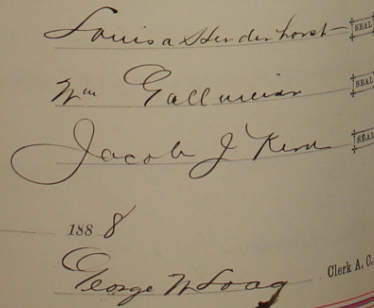 Louisa Henderhorst [SEAL]
Wm Gallmeier [SEAL]
Jacob J Kern [SEAL]
1888
George W Loag
Clerk A. C.